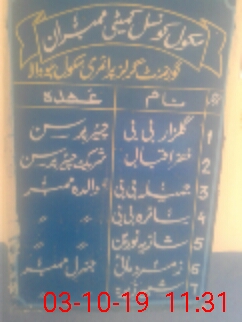 سکول کونسل کمیٹی ممبران
گورنمنٹ گرلز پرائمری سکول
نام عہدہ
1 گلزار بی بی چیئر پرسن
2 خضر اقبال شریک چیئر پرسن
3 جمیلہ بی بی والدہ ممبر
4 سائرہ بی بی 〃 〃
5 شازیہ نورین 〃 〃
6 زمرد جنرل ممبر
7
03-10-19 11:31